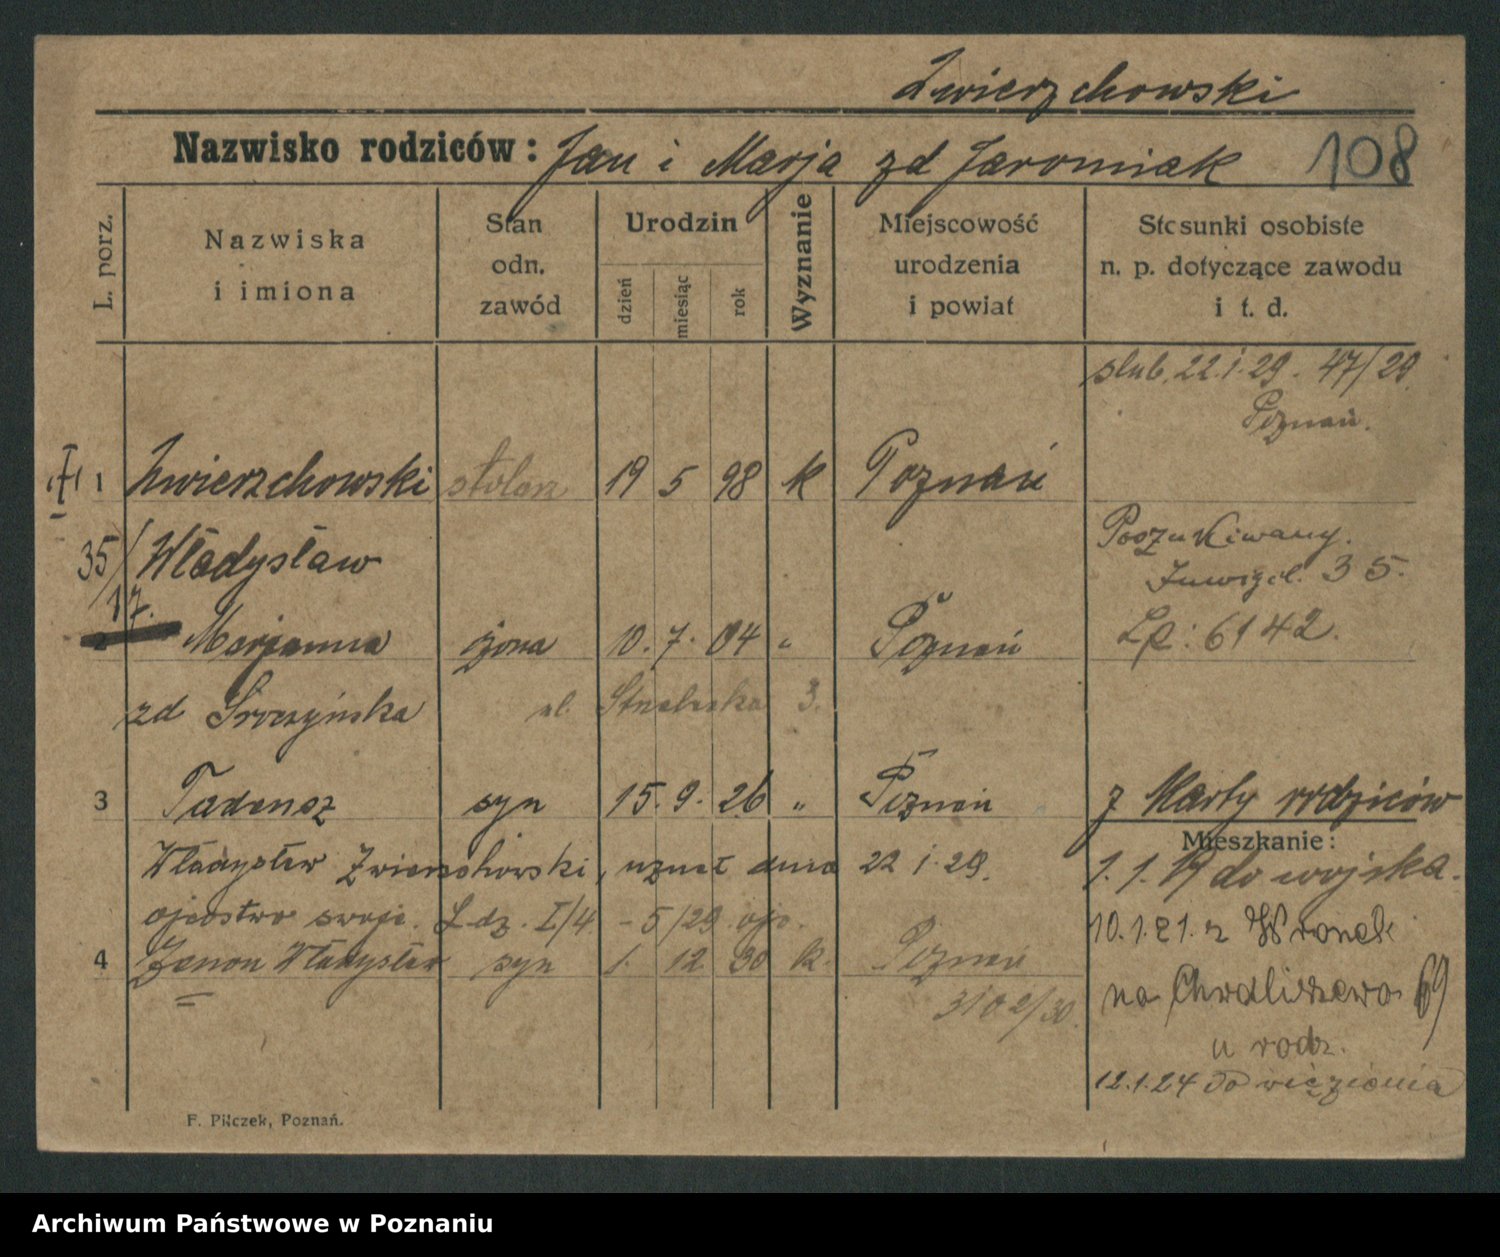 Zwierzchowski
Nazwisko rodziców: Jan i Marja zd Jaromiak 108
L. porz.
Nazwiska i imiona
Stan odn. zawód
Urodzin
dzień miesiąc rok
Wyznanie
Miejscowość urodzenia i powiat
Stosunki osobiste n. p. dotyczące zawodu i t. d.
slub. 22.1.29. 47/29
Poznań.
1 Zwierzchowski stolarz 19 5 98 k Poznań
35/17. Władysław
Poszukiwany.
Inwigil. 35.
Lp: 6142.
Marjanna żona 10. 7. 04 " Poznań
zd Sroczyńska ul. 3.
3 Tadeusz syn 15. 9. 26 " Poznań
z Karty rodziców
Mieszkanie:
Władysław Zwierzchowski, uznał dnia 22 1. 29.
1. 1. 19 do wojska.
ojcostwo swoje. L dz. I/4 - 5/29 ojc.
10.1.21. z Wronek
4 Zenon Władysław syn 1. 12 30 k. Poznań
na Chwaliszewo 69
3102/30.
u rodz.
12.1.24 do więzienia
F. Pilczek, Poznań.
Archiwum Państwowe w Poznaniu